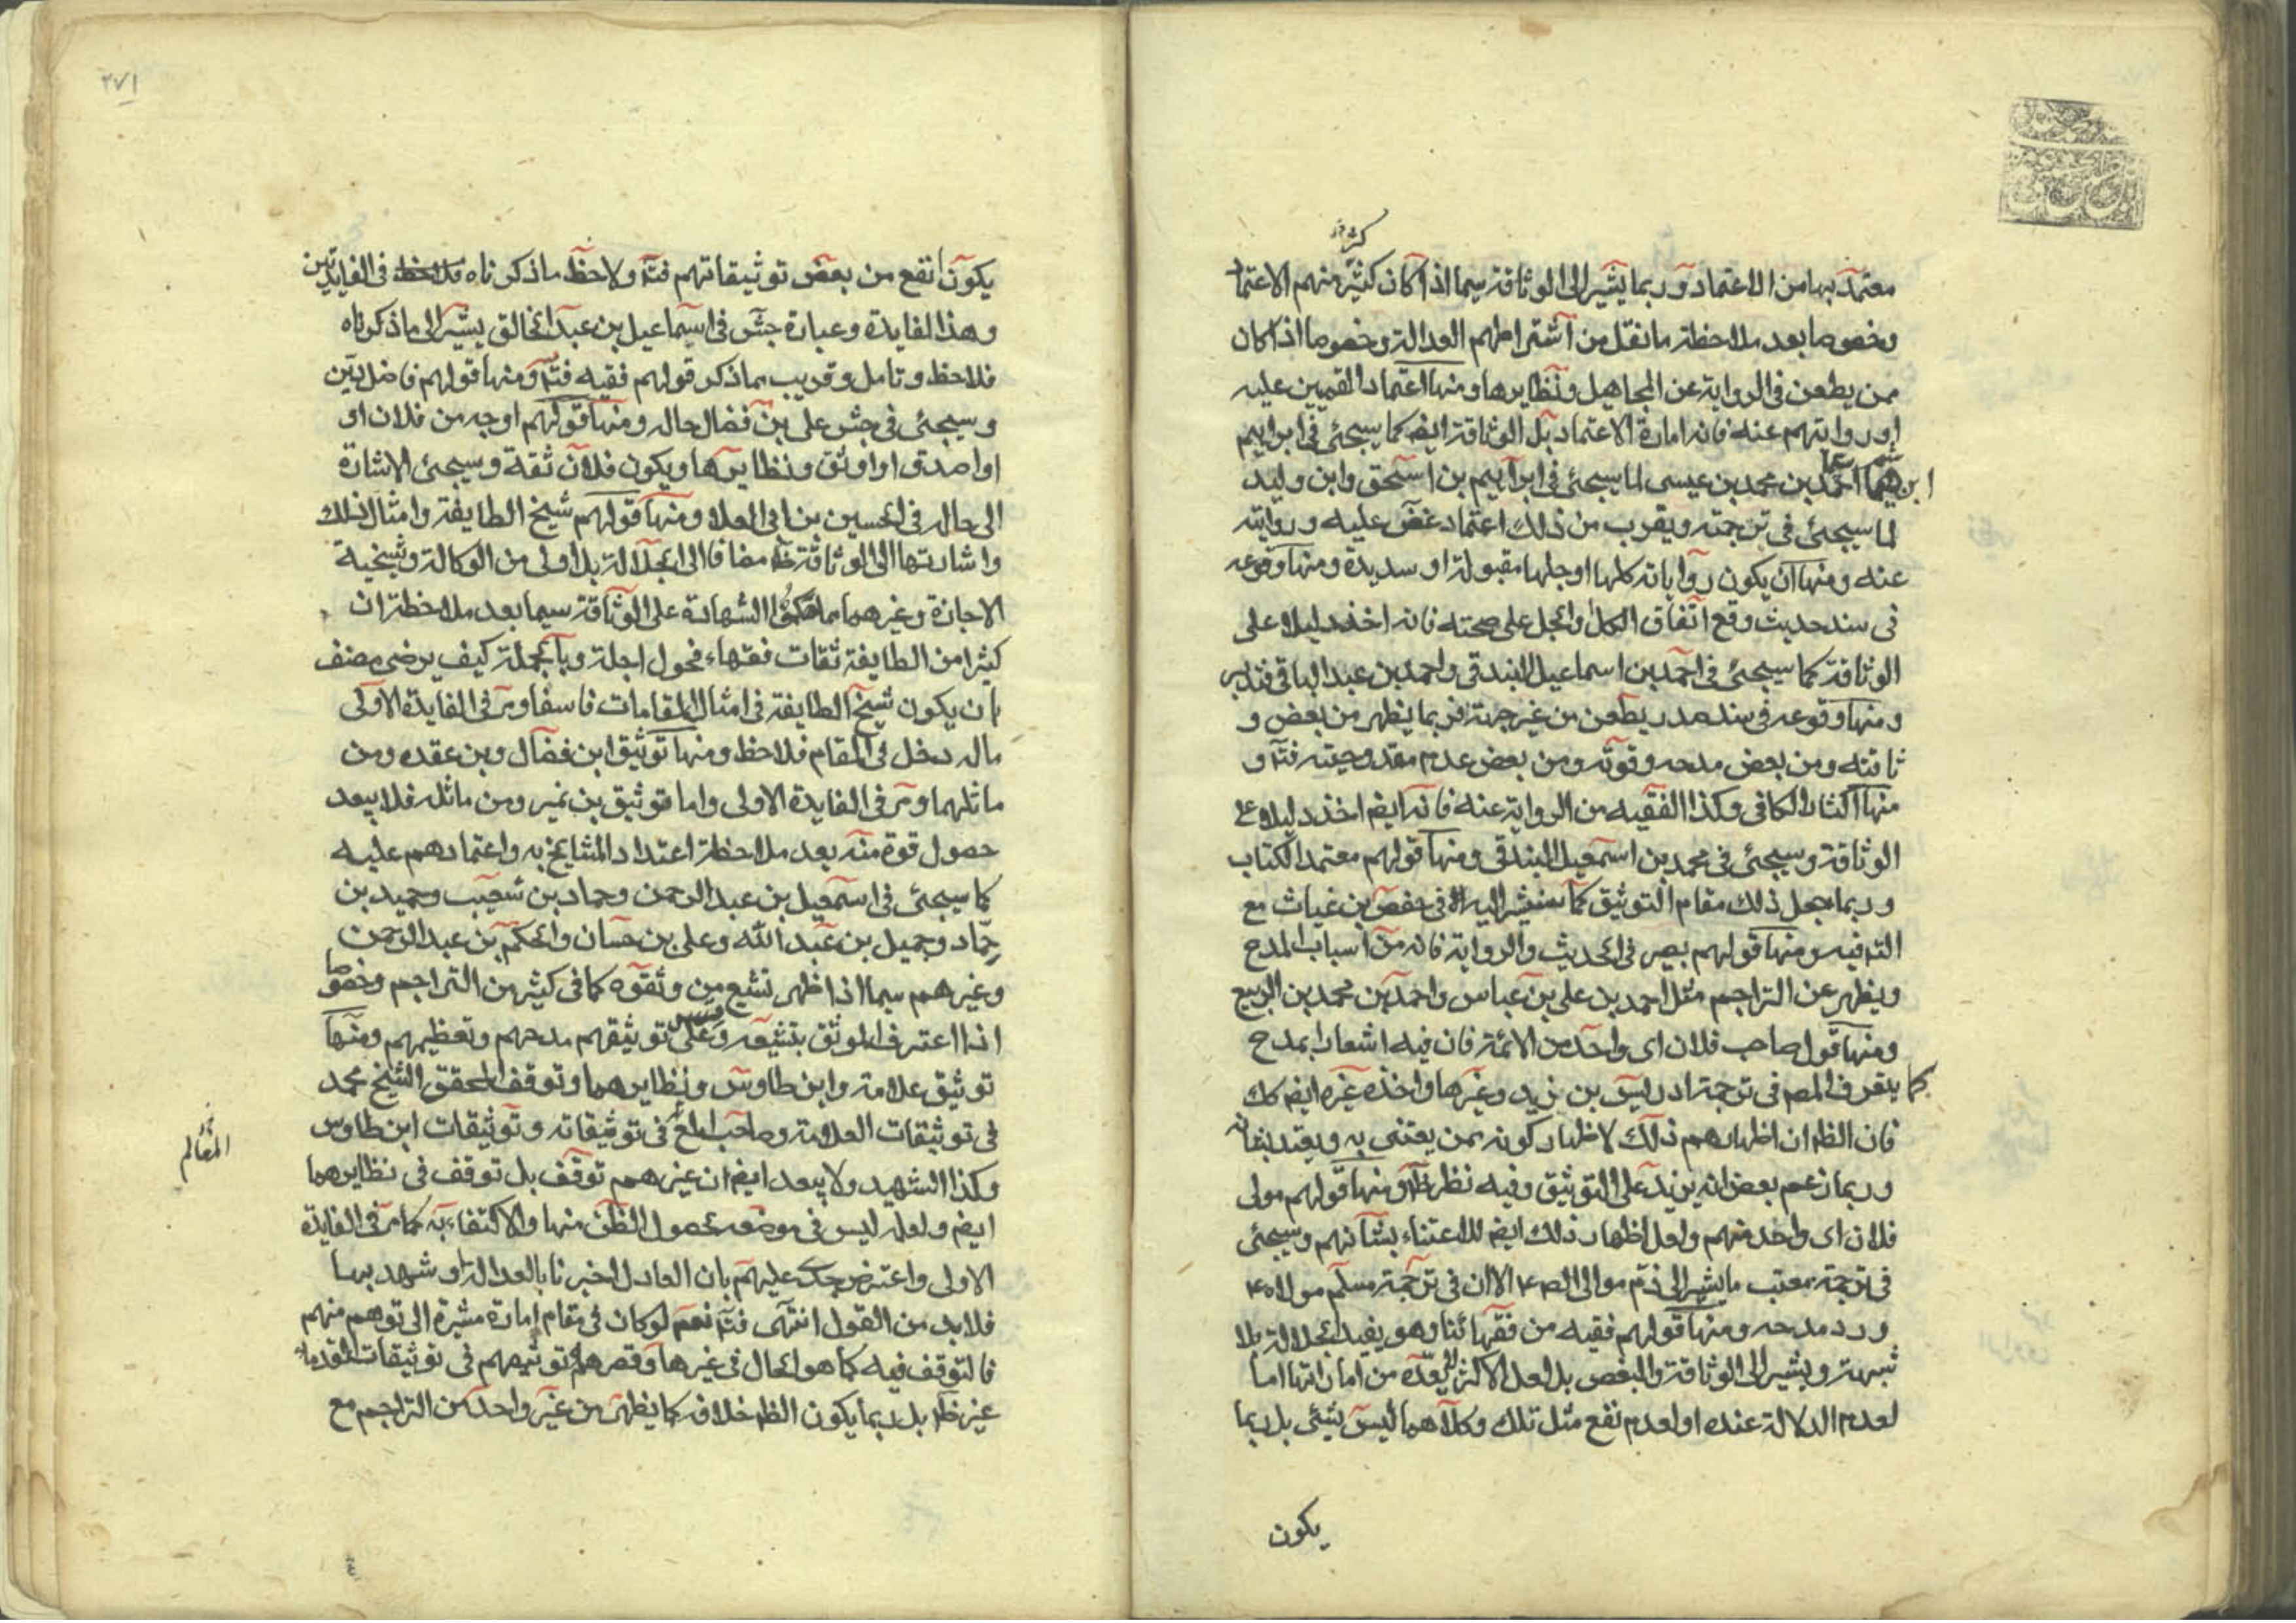 كثير
معتمد بها من الاعتماد وربما يشير الى الوثاقة سيما اذا كان كثير منهم الاعتماد
وخصوصا بعد ملاحظة ما نقل من اشتراطهم العدالة وخصوصا اذا كان
ممن يطعن فى الرواية عن المجاهيل ونظايرها ومنها اعتماد القميين عليه
او روايتهم عنه فانه امارة الاعتماد بل الوثاقة ايضا كما سيجئ فى ابراهيم
ابن هاشم سيما احمد بن محمد بن عيسى لما سيجئ فى ابراهيم بن اسحق وابن وليد
لما سيجئ فى ترجمته ويقرب من ذلك اعتماد غض عليه وروايته
عنه ومنها ان يكون رواياته كلها او جلها مقبولة او سديدة ومنها وقوعه
فى سند حديث وقع اتفاق الكل والجل على صحته فانه اخذ دليلا على
الوثاقة كما سيجئ فى احمد بن اسماعيل البندقى واحمد بن عبد الباقى فتدبر
ومنها وقوعه فى سند صدر يطعن من غير جهة فربما يظهر من بعض و
ثاقته ومن بعض مدحه وقوته ومن بعض عدم مقدوحيته فتة و
منها اكثار الكافى وكذا الفقيه من الرواية عنه فانه ايض اخذ دليلا على
الوثاقة وسيجئ فى محمد بن اسمعيل البندقى ومنها قولهم معتمد الكتاب
وربما جعل ذلك مقام التوثيق كما سنشير اليه فى حفص بن غياث مع
التة فيه ومنها قولهم بصير فى الحديث والرواية فانه من اسباب المدح
ويظهر عن التراجم مثل احمد بن على بن عباس واحمد بن محمد بن الربيع
ومنها قول صاحب فلان اى واحد من الائمة فان فيه اشعارا بمدح
كما يعترف المصم فى ترجمة ادريس بن زيد وغيرها واخذه غيره ايض كك
فان الظ ان اظهارهم ذلك لاظهار كونه ممن يعتنى به ويعتد بشانه
وربما زعم بعض انه يزيد على التوثيق وفيه نظر ظ ومنها قولهم مولى
فلان اى واحد منهم ولعل اظهار ذلك ايض للاعتناء بشانهم وسيجئ
فى ترجمة معتب ما يشير الى ذم موالى الصم الا ان فى ترجمة مسلم مولاه
ورد مدحه ومنها قولهم فقيه من فقهائنا وهو يفيد الجلالة بلا
شبهة ويشير الى الوثاقة والبعض بل لعل الاكثر لا يعده من اماراتها اما
لعدم الدلالة عنده او لعدم نفع مثل تلك وكلاهما ليس بشئ بل ربما
يكون
٢٧١
يكون انفع من بعض توثيقاتهم فتة ولاحظ ما ذكرناه فى الفايدتين
وهذا الفايدة وعبارة جش فى اسماعيل بن عبد الخالق يشير الى ما ذكرناه
فلاحظ وتامل وقريب مما ذكر قولهم فقيه فتة ومنها قولهم فاضل دين
وسيجئ فى جش على بن فضال حاله ومنها قولهم اوجه من فلان او
او اصدق او اوثق ونظايرها ويكون فلان ثقة وسيجئ الاشارة
الى حاله فى الحسين بن ابى العلا ومنها قولهم شيخ الطايفة وامثال ذلك
واشارتها الى الوثاقة ظ مضافا الى الجلالة بل اولى من الوكالة وشيخية
الاجازة وغيرهما مما حكموا الشهادة على الوثاقة سيما بعد ملاحظة ان
كثيرا من الطايفة ثقات فقهاء فحول اجلة وبالجملة كيف يرضى منصف
بان يكون شيخ الطايفة فى امثال المقامات فاسقا ومر فى الفايدة الاولى
ماله دخل فى المقام فلاحظ ومنها توثيق ابن فضال وبن عقده ومن
ماثلهما ومر فى الفايدة الاولى واما توثيق بن نمير ومن ماثله فلا يبعد
حصول قوة منه بعد ملاحظة اعتداد المشايخ به واعتمادهم عليه
كما سيجئ فى اسمعيل بن عبد الرحمن وحماد بن شعيب وحميد بن
حماد وجميل بن عبد الله وعلى بن حسان والحكم بن عبد الرحمن
وغيرهم سيما اذا ظهر تشيع من وثقوه كما فى كثير من التراجم وخصوصا
اذا اعترف الموثق بتشيعه وقس على توثيقهم مدحهم وتعظيمهم ومنها
توثيق علامة وابن طاوس ونظايرهما وتوقف المحقق الشيخ محمد
فى توثيقات العلامة وصاحب المع فى توثيقاته وتوثيقات ابن طاوس
المعالم
وكذا الشهيد ولا يبعد ايض ان غيرهم توقف بل توقف فى نظايرهما
ايض ولعله ليس فى موضعه لحصول الظن منها والاكتفاء به كما مر فى الفايدة
الاولى واعترض جدى عليهم بان العادل اخبرنا بالعدالة او شهد بها
فلا بد من القول انتهى فتة نعم لو كان فى مقام امارة مشيرة الى توهم منهم
فالتوقف فيه كما هو الحال فى غيرها وقصرهم توثيقهم فى توثيقات القدماء
غير ظ بل ربما يكون الظ خلافه كما يظهر من غير واحد من التراجم مع